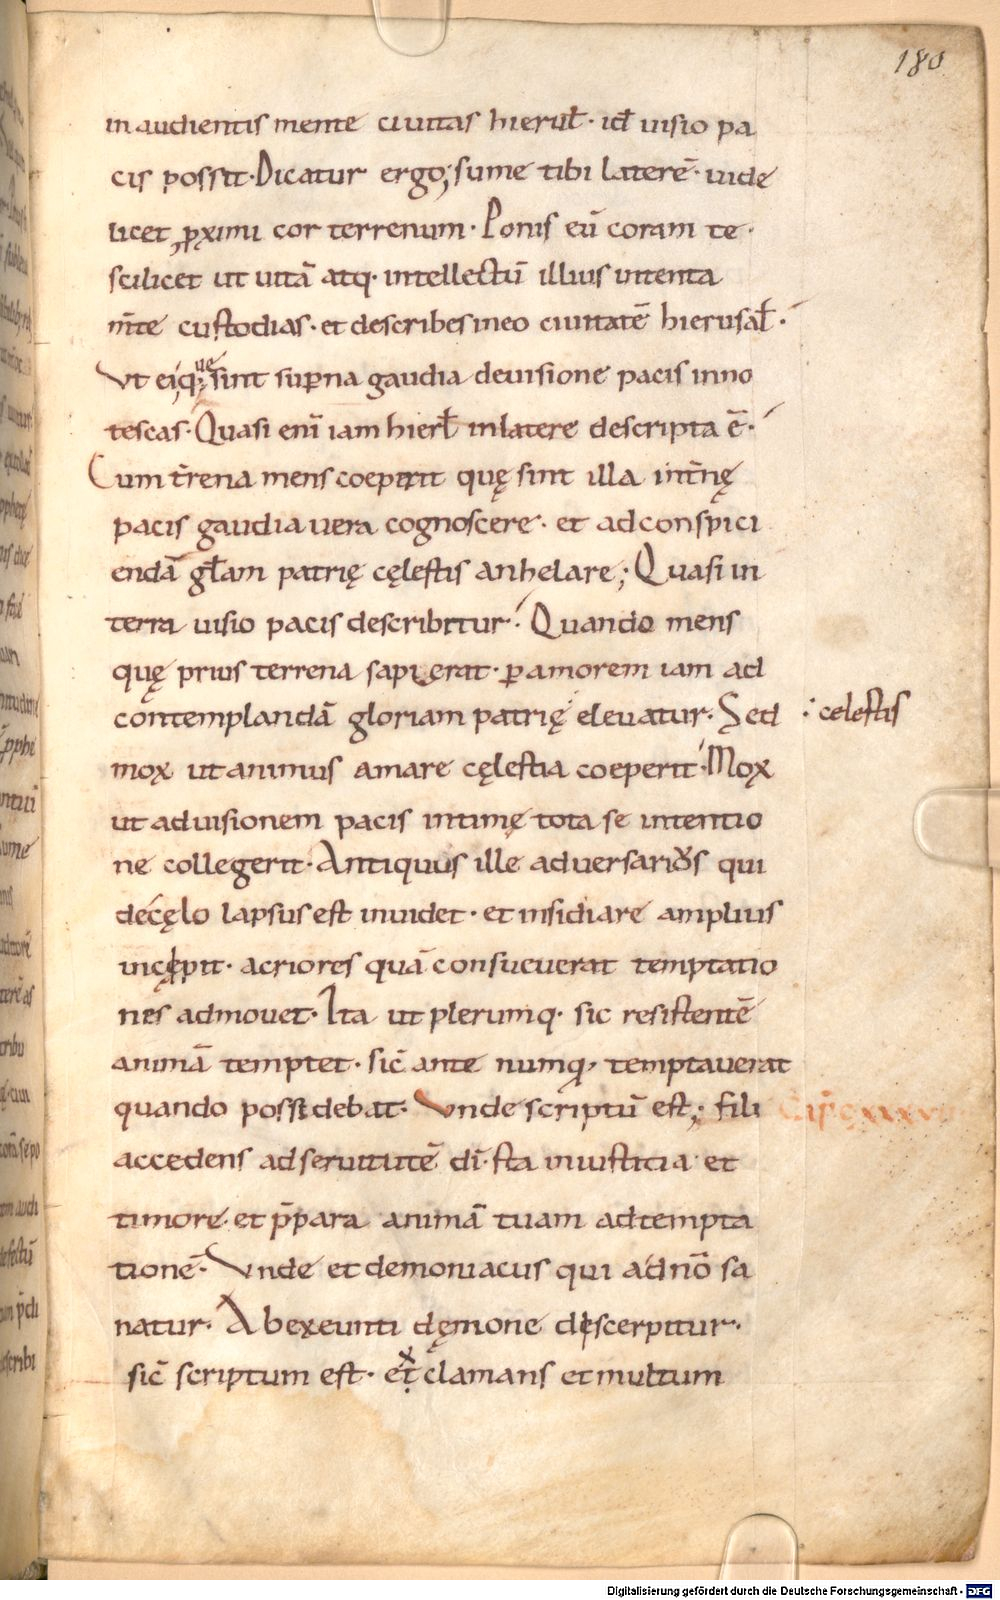 180
in audientis mente ciuitas hierul̄· id ̄ uisio pa
cis possit· Dicatur ergo; sume tibi laterē· uide
licet ꝓximi cor terrenum· Ponis eū coram te·
scilicet ut uitā atq· intellectū illius intenta
m̄te custodias· et describes in eo ciuitatē hierusal̄·
Ut ei quę sint suꝑna gaudia de uisione pacis inno
tescas· Quasi eni̅ iam hierl̄ in latere descripta ē·
Cum t̄rena mens coeperit quę sint illa int̄nę
pacis gaudia uera cognoscere· et ad conspici
endā gl̄am patrię cęlestis anhelare; Quasi in
terra uisio pacis describitur· Quando mens
quę prius terrena sapuerat· ꝑ amorem iam ad
contemplandā gloriam patrię eleuatur· Sed
:· celestis
mox ut animus amare cęlestia coeperit· Mox
ut ad uisionem pacis intimę tota se intentio
ne collegerit· Antiquus ille aduersarios qui
de cęlo lapsus est inuidet· et insidiare amplius
incępit· acriores quā consueuerat temptatio
nes admouet· Ita ut plerumq· sic resistentē
animā temptet· sic̄ ante numq̄ temptauerat
quando possidebat· Unde scriptū est; fili
accedens ad seruitutē di̅· sta in iustitia et
timore· et p̄para animā tuam ad tempta
tionē· Unde et demoniacus qui a dn̄o sa
natur· Ab exeunti dęmone discerpitur·
sic̄ scriptum est· et exclamans et multum
Digitalisierung gefördert durch die Deutsche Forschungsgemeinschaft · DFG